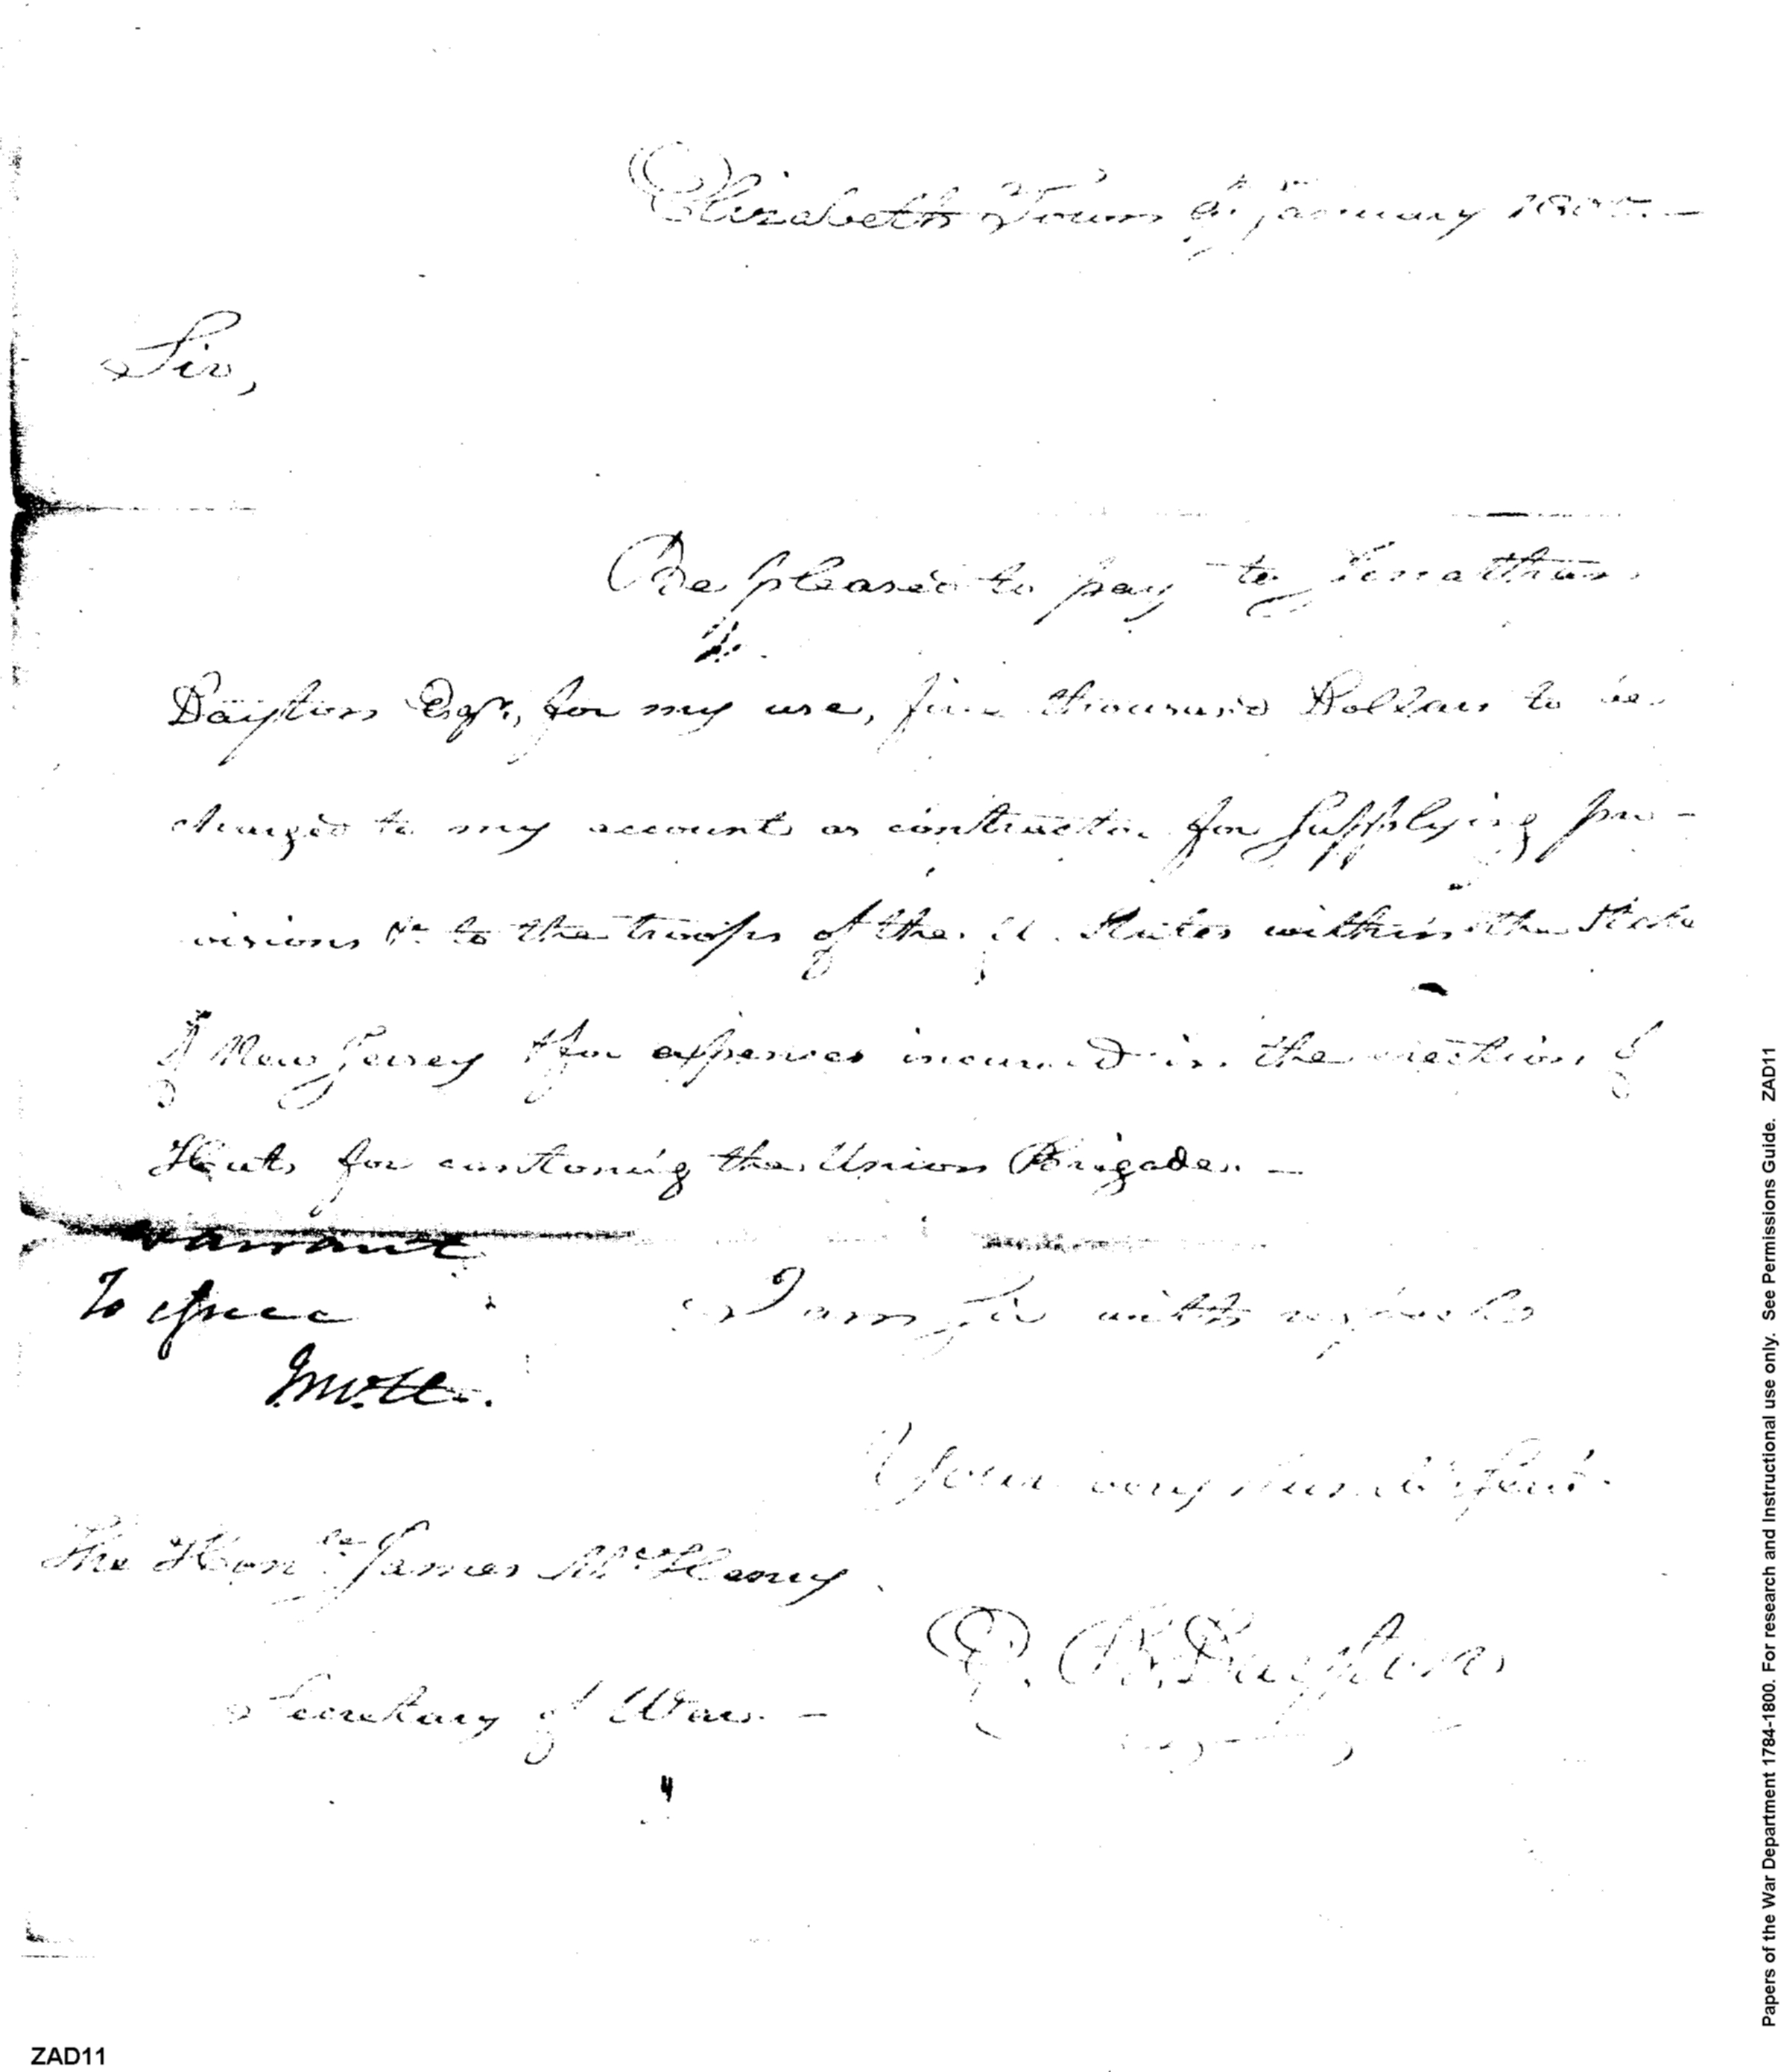 Elizabeth Town 9th January 1800. —
Sir,
Be pleased to pay to Jonathan
Dayton Esqr, for my use, five thousand Dollars to be
charged to my account as contractor for supplying pro-
visions &c to the troops of the U. States within the State
of New Jersey & for expenses incurred in the erection of
Huts for cantoning the Union Brigade. —
warrant
To issue
J. McH.
I am Sir with respect
Your very humb. Servt.
The Honble James McHenry
E. B. Dayton
Secretary of War. —
ZAD11
Papers of the War Department 1784-1800. For research and Instructional use only. See Permissions Guide. ZAD11